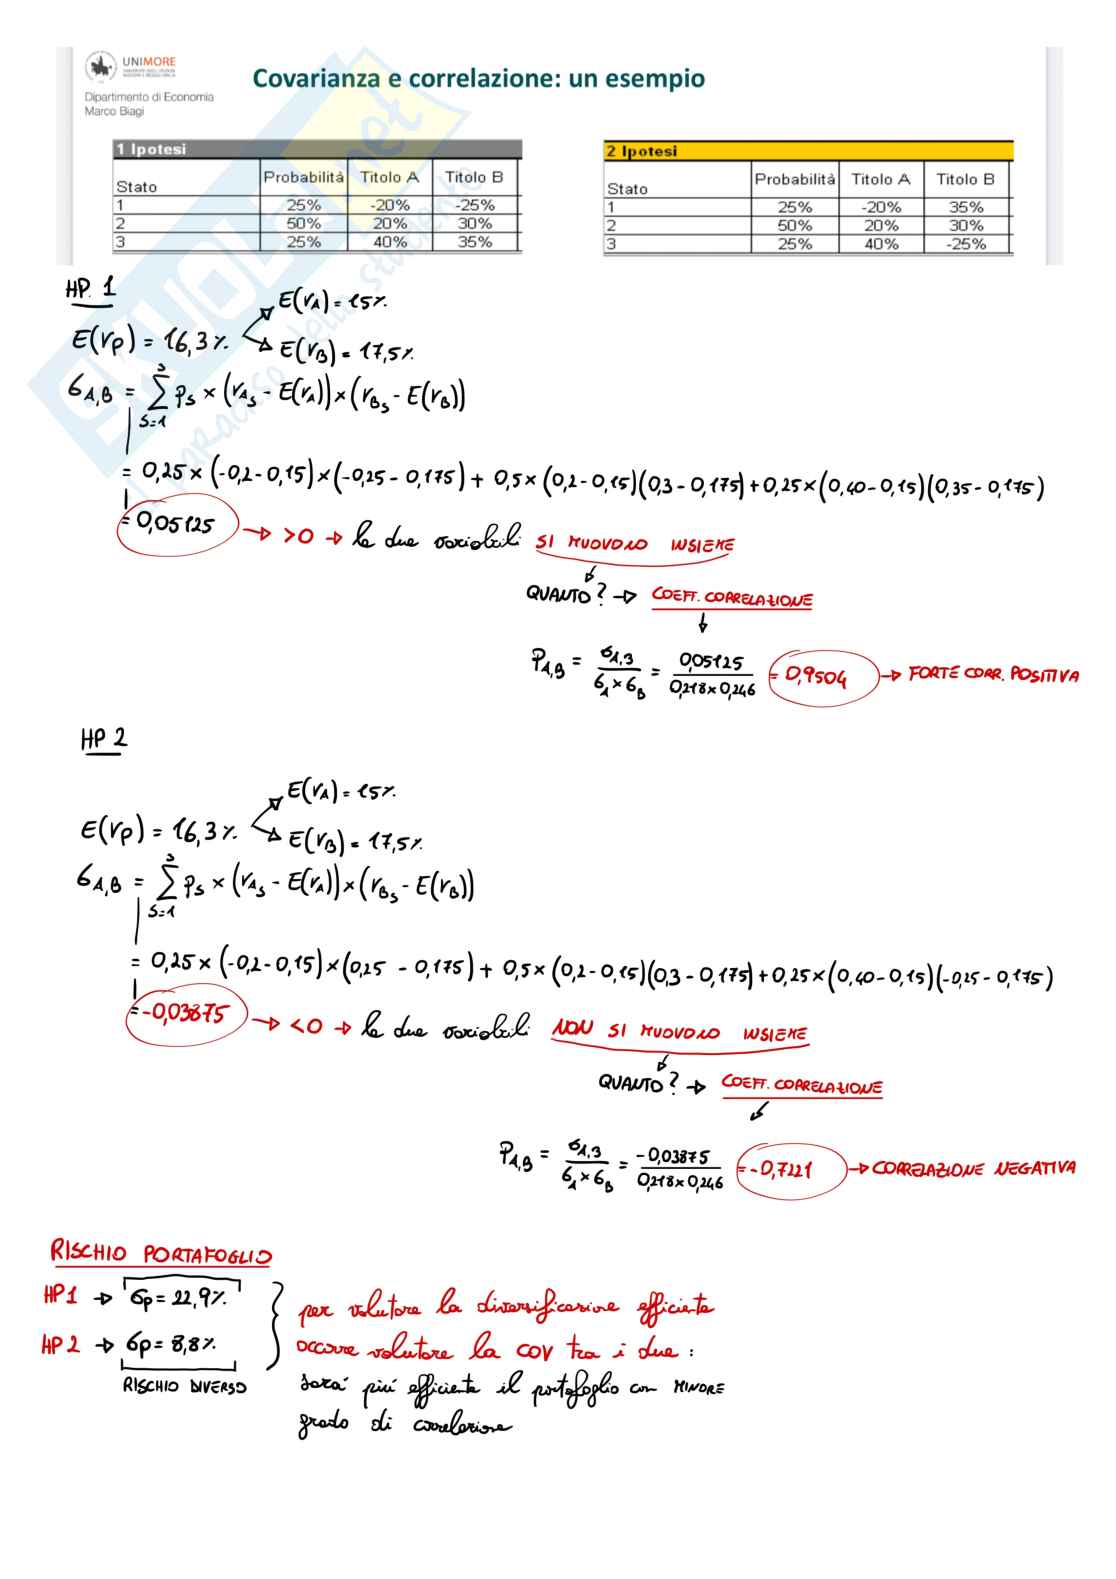 UNIMORE
UNIVERSITÀ DEGLI STUDI DI
MODENA E REGGIO EMILIA
Dipartimento di Economia
Marco Biagi
Covarianza e correlazione: un esempio
1 Ipotesi
Stato Probabilità Titolo A Titolo B
1 25% -20% -25%
2 50% 20% 30%
3 25% 40% 35%
2 Ipotesi
Stato Probabilità Titolo A Titolo B
1 25% -20% 35%
2 50% 20% 30%
3 25% 40% -25%
SKUOLA.net
il paradiso dello studente
HP. 1
E(rA) = 15%
E(rP) = 16,3%
E(rB) = 17,5%
σA,B = Σ³S=1 PS × (rAS - E(rA)) × (rBS - E(rB))
= 0,25 × (-0,2 - 0,15) × (-0,25 - 0,175) + 0,5 × (0,2 - 0,15)(0,3 - 0,175) + 0,25 × (0,40 - 0,15)(0,35 - 0,175)
= 0,05125 → >0 → le due variabili SI MUOVONO INSIEME
QUANTO? → COEFF. CORRELAZIONE
ρA,B = σA,B / σA × σB = 0,05125 / 0,218 × 0,246 = 0,9504 → FORTE CORR. POSITIVA
HP 2
E(rA) = 15%
E(rP) = 16,3%
E(rB) = 17,5%
σA,B = Σ³S=1 PS × (rAS - E(rA)) × (rBS - E(rB))
= 0,25 × (-0,2 - 0,15) × (0,25 - 0,175) + 0,5 × (0,2 - 0,15)(0,3 - 0,175) + 0,25 × (0,40 - 0,15)(-0,25 - 0,175)
= -0,03875 → <0 → le due variabili NON SI MUOVONO INSIEME
QUANTO? → COEFF. CORRELAZIONE
ρA,B = σA,B / σA × σB = -0,03875 / 0,218 × 0,246 = -0,7221 → CORRELAZIONE NEGATIVA
RISCHIO PORTAFOGLIO
HP1 → σp = 22,9%
HP 2 → σp = 8,8%
RISCHIO DIVERSO
per valutare la diversificazione efficiente
occorre valutare la COV tra i due :
sarà più efficiente il portafoglio con MINORE
grado di correlazione